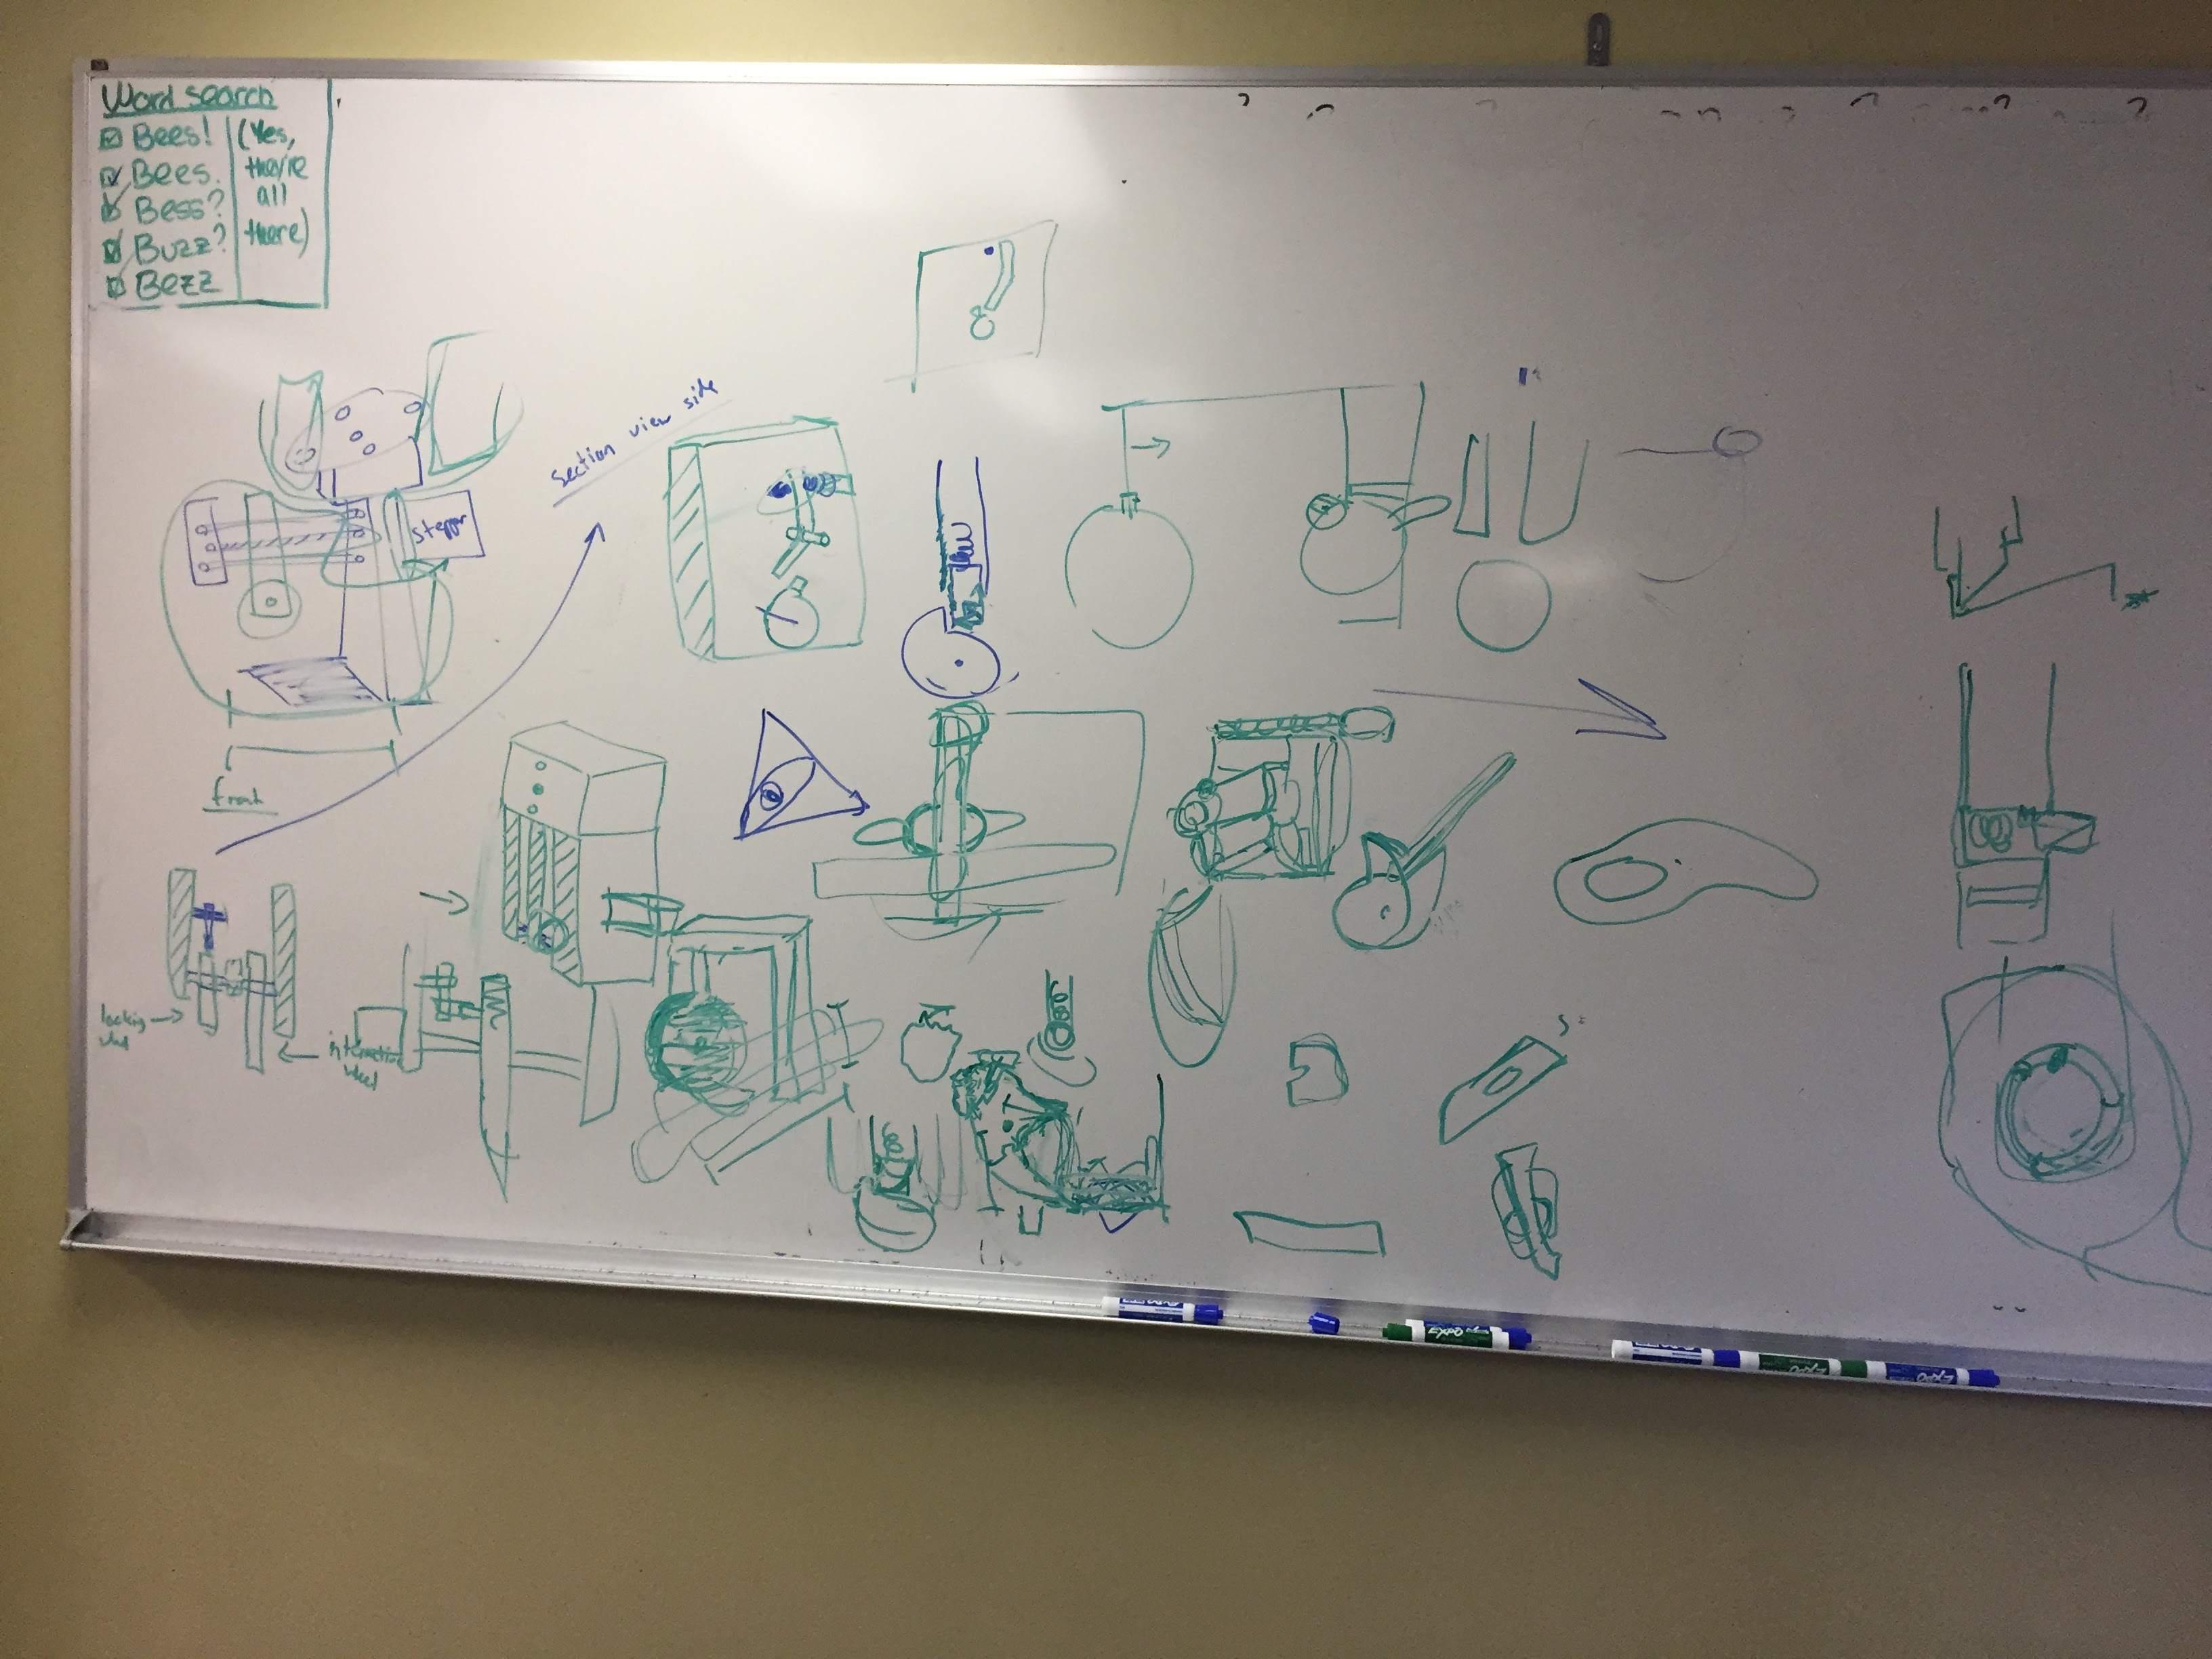 Word search
Bees!
Bees.
Bess?
Buzz?
Bezz
(Yes,
they're
all
there)
section view side
stepper
front
locking
wheel
interaction
wheel
EXPO
EXPO
EXPO